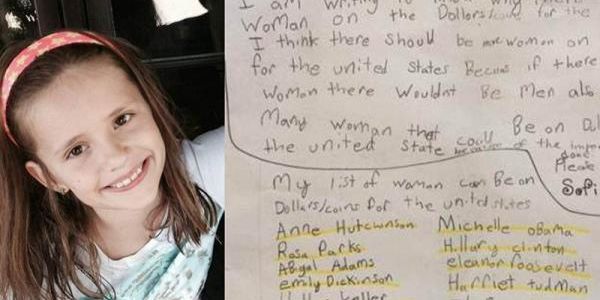 I am writing to know why
Woman on the Dollars/coins for the
I think there should be more woman on
for the united States Because if there
Woman there wouldnt Be Men also
Many Woman that could Be on Dol
the united State because of the impo
done
Please
Sofi
My list of woman can Be on
Dollars/coins for the united states
Anne Hutchinson Michelle obama
Rosa Parks Hillary clinton
Abigal Adams eleanor roosevelt
emily Dickinson Harriet tudman